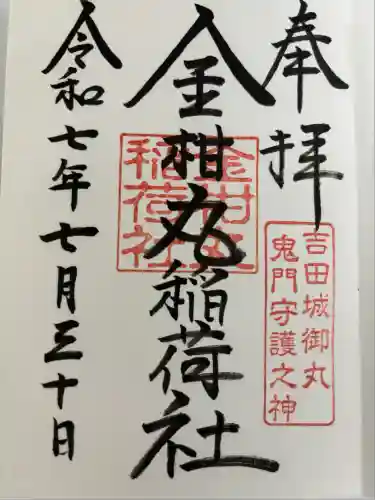 奉拝
吉田城御丸
鬼門守護之神
金柑丸稲荷社
令和七年七月三十日